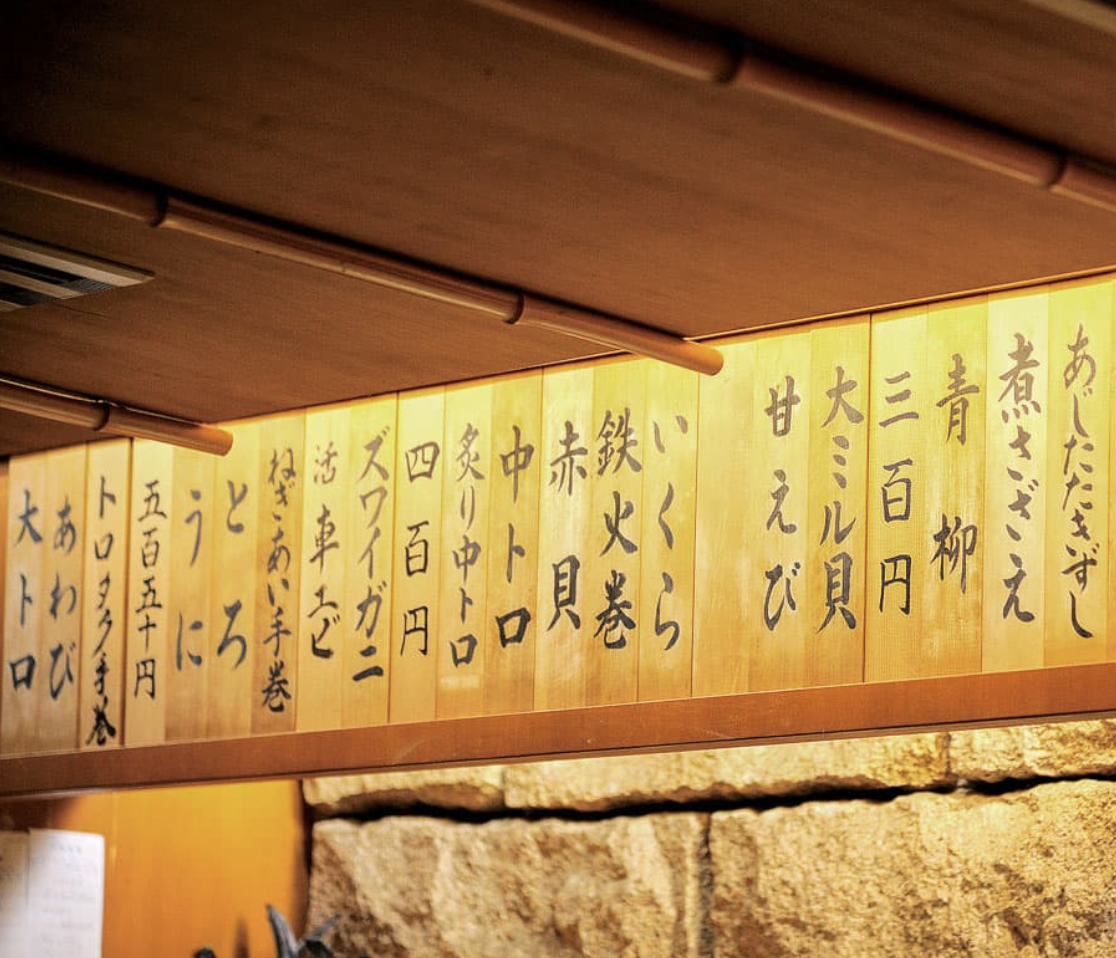 あじたたきずし
煮さざえ
青柳
三百円
大ミル貝
甘えび
いくら
鉄火巻
赤貝
中トロ
炙り中トロ
四百円
ズワイガニ
活車エビ
ねぎあい手巻
とろ
うに
五百五十円
トロタク手巻
あわび
大トロ